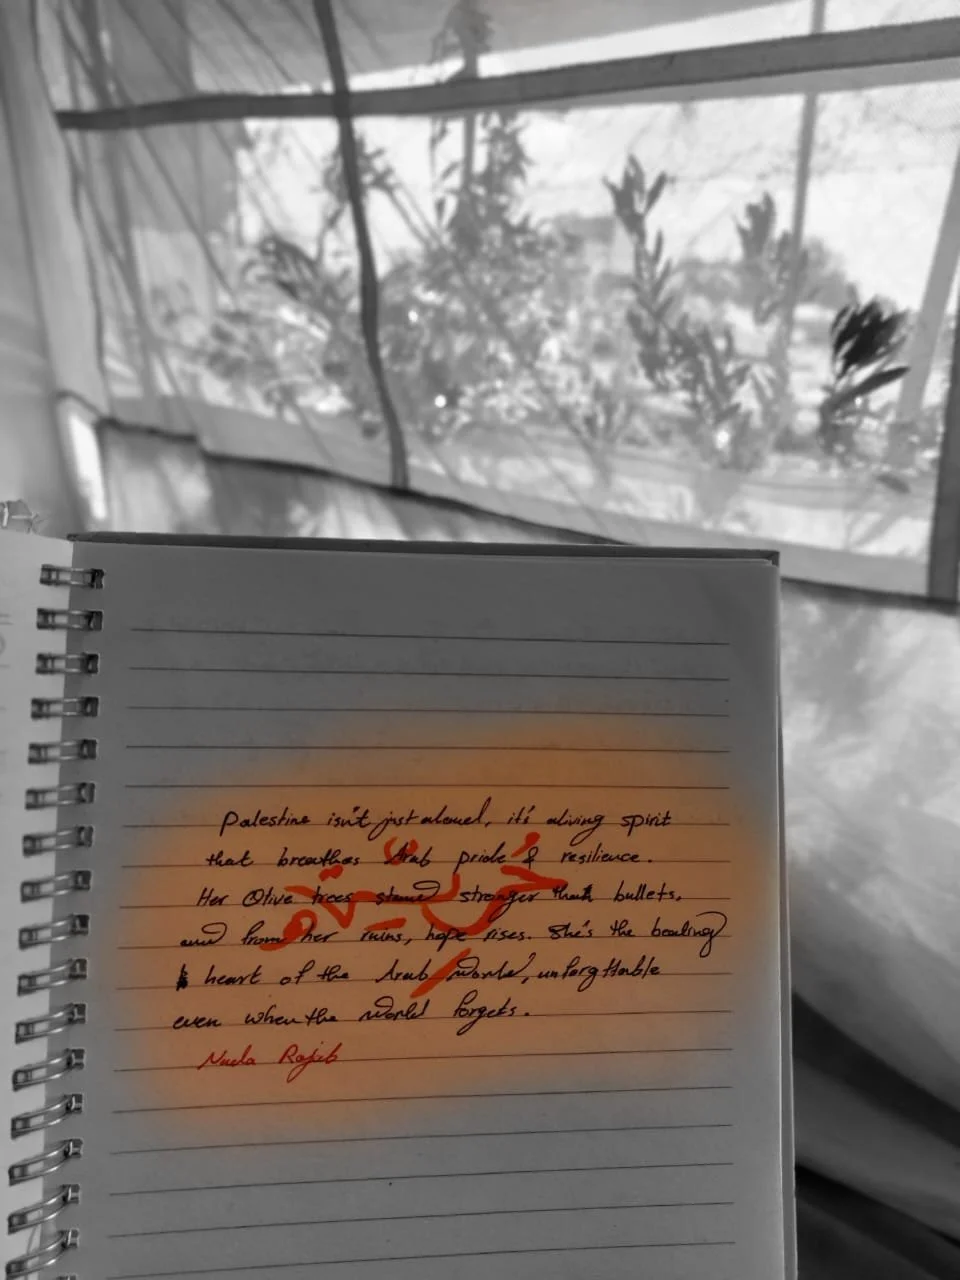 Palestine isn't just aland, it's aliving spirit
that breathes Arab pride & resilience.
Her Olive trees stand stronger than bullets,
and from her ruins, hope rises. She's the beating
heart of the Arab world, unforgttable
even when the world forgets.
Nada Rajab
حُريّة